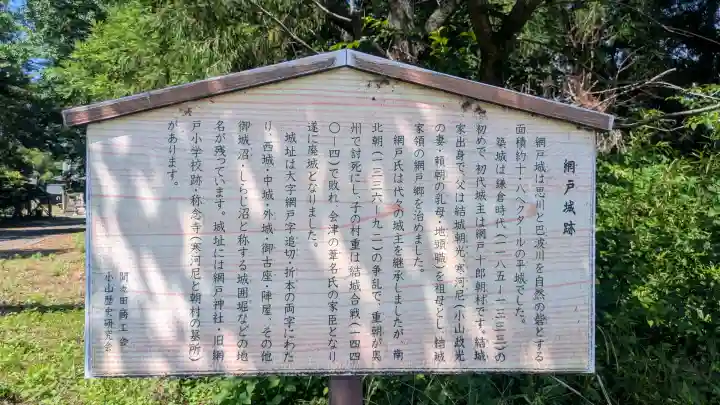 網戸城跡
網戸城は思川と巴波川を自然の砦とする
面積約十八ヘクタールの平城でした。
築城は鎌倉時代(一一八五ー一三三三)の
初めで、初代城主は網戸十郎朝村です。結城
家出身で、父は結城朝光、寒河尼(小山政光
の妻・頼朝の乳母・地頭職)を祖母とし、結城
家領の網戸郷を治めました。
網戸氏は代々の城主を継承しましたが、南
北朝(一三三六ー九二)の争乱で、重朝が奥
州で討死にし、子の村重は結城合戦(一四四
〇ー四一)で敗れ、会津の葦名氏の家臣となり
遂に廃城となりました。
城址は大字網戸字追切・折本の両字にわた
り、西城・中城・外城・御古座・陣屋、その他
御城沼・しらじ沼と称する城囲堀などの地
名が残っています。城址には網戸神社・旧網
戸小学校跡・称念寺(寒河尼と朝村の墓所)
があります。
間々田商工会
小山歴史研究会